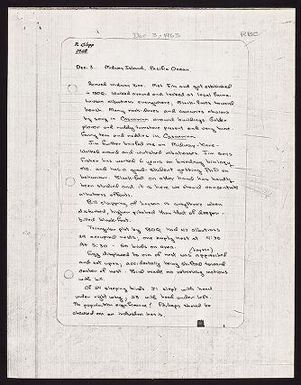 Dec 3, 1963
RBC
R. Clapp
1963
Dec. 3 Midway Island, Pacific Ocean
Arrived midway 2 A.M. Met Jim and got established
in BOQ. Walked around and looked at local fauna.
Laysan albatross everywhere, Black-foots toward
beach. Many rock doves and canaries obvious
by song in Casuarina around buildings. Golden
plover and ruddy turnstone present and very tame.
Fairy tern and noddies in Casuarina.
Jim further briefed me on Midway-Kure.
Walked around and watched albatrosses. Jim says
Fisher has worked 4 years on breeding biology
etc. and has a grad student getting PhD on
behaviour. Black-foot on other hand has hardly
been studied and it is here we should concentrate
albatross efforts.
Bill clapping of Laysan is everywhere when
disturbed, higher pitched than that of deeper-
billed black-foot.
Triangular plot by BOQ had 65 albatross
on occupied nests, one empty nest at 4:30
At 5:30 - 60 birds on eggs.
(Laysan)
Egg displaced to rim of nest was appreciated
and sat upon; accidentally being shifted toward
center of nest. Bird made no retrieving motions
with bill.
Of 54 sleeping birds 31 slept with head
under right wing, 23 with head under left.
Is proportion significant? Perhaps should be
checked on an individual basis.